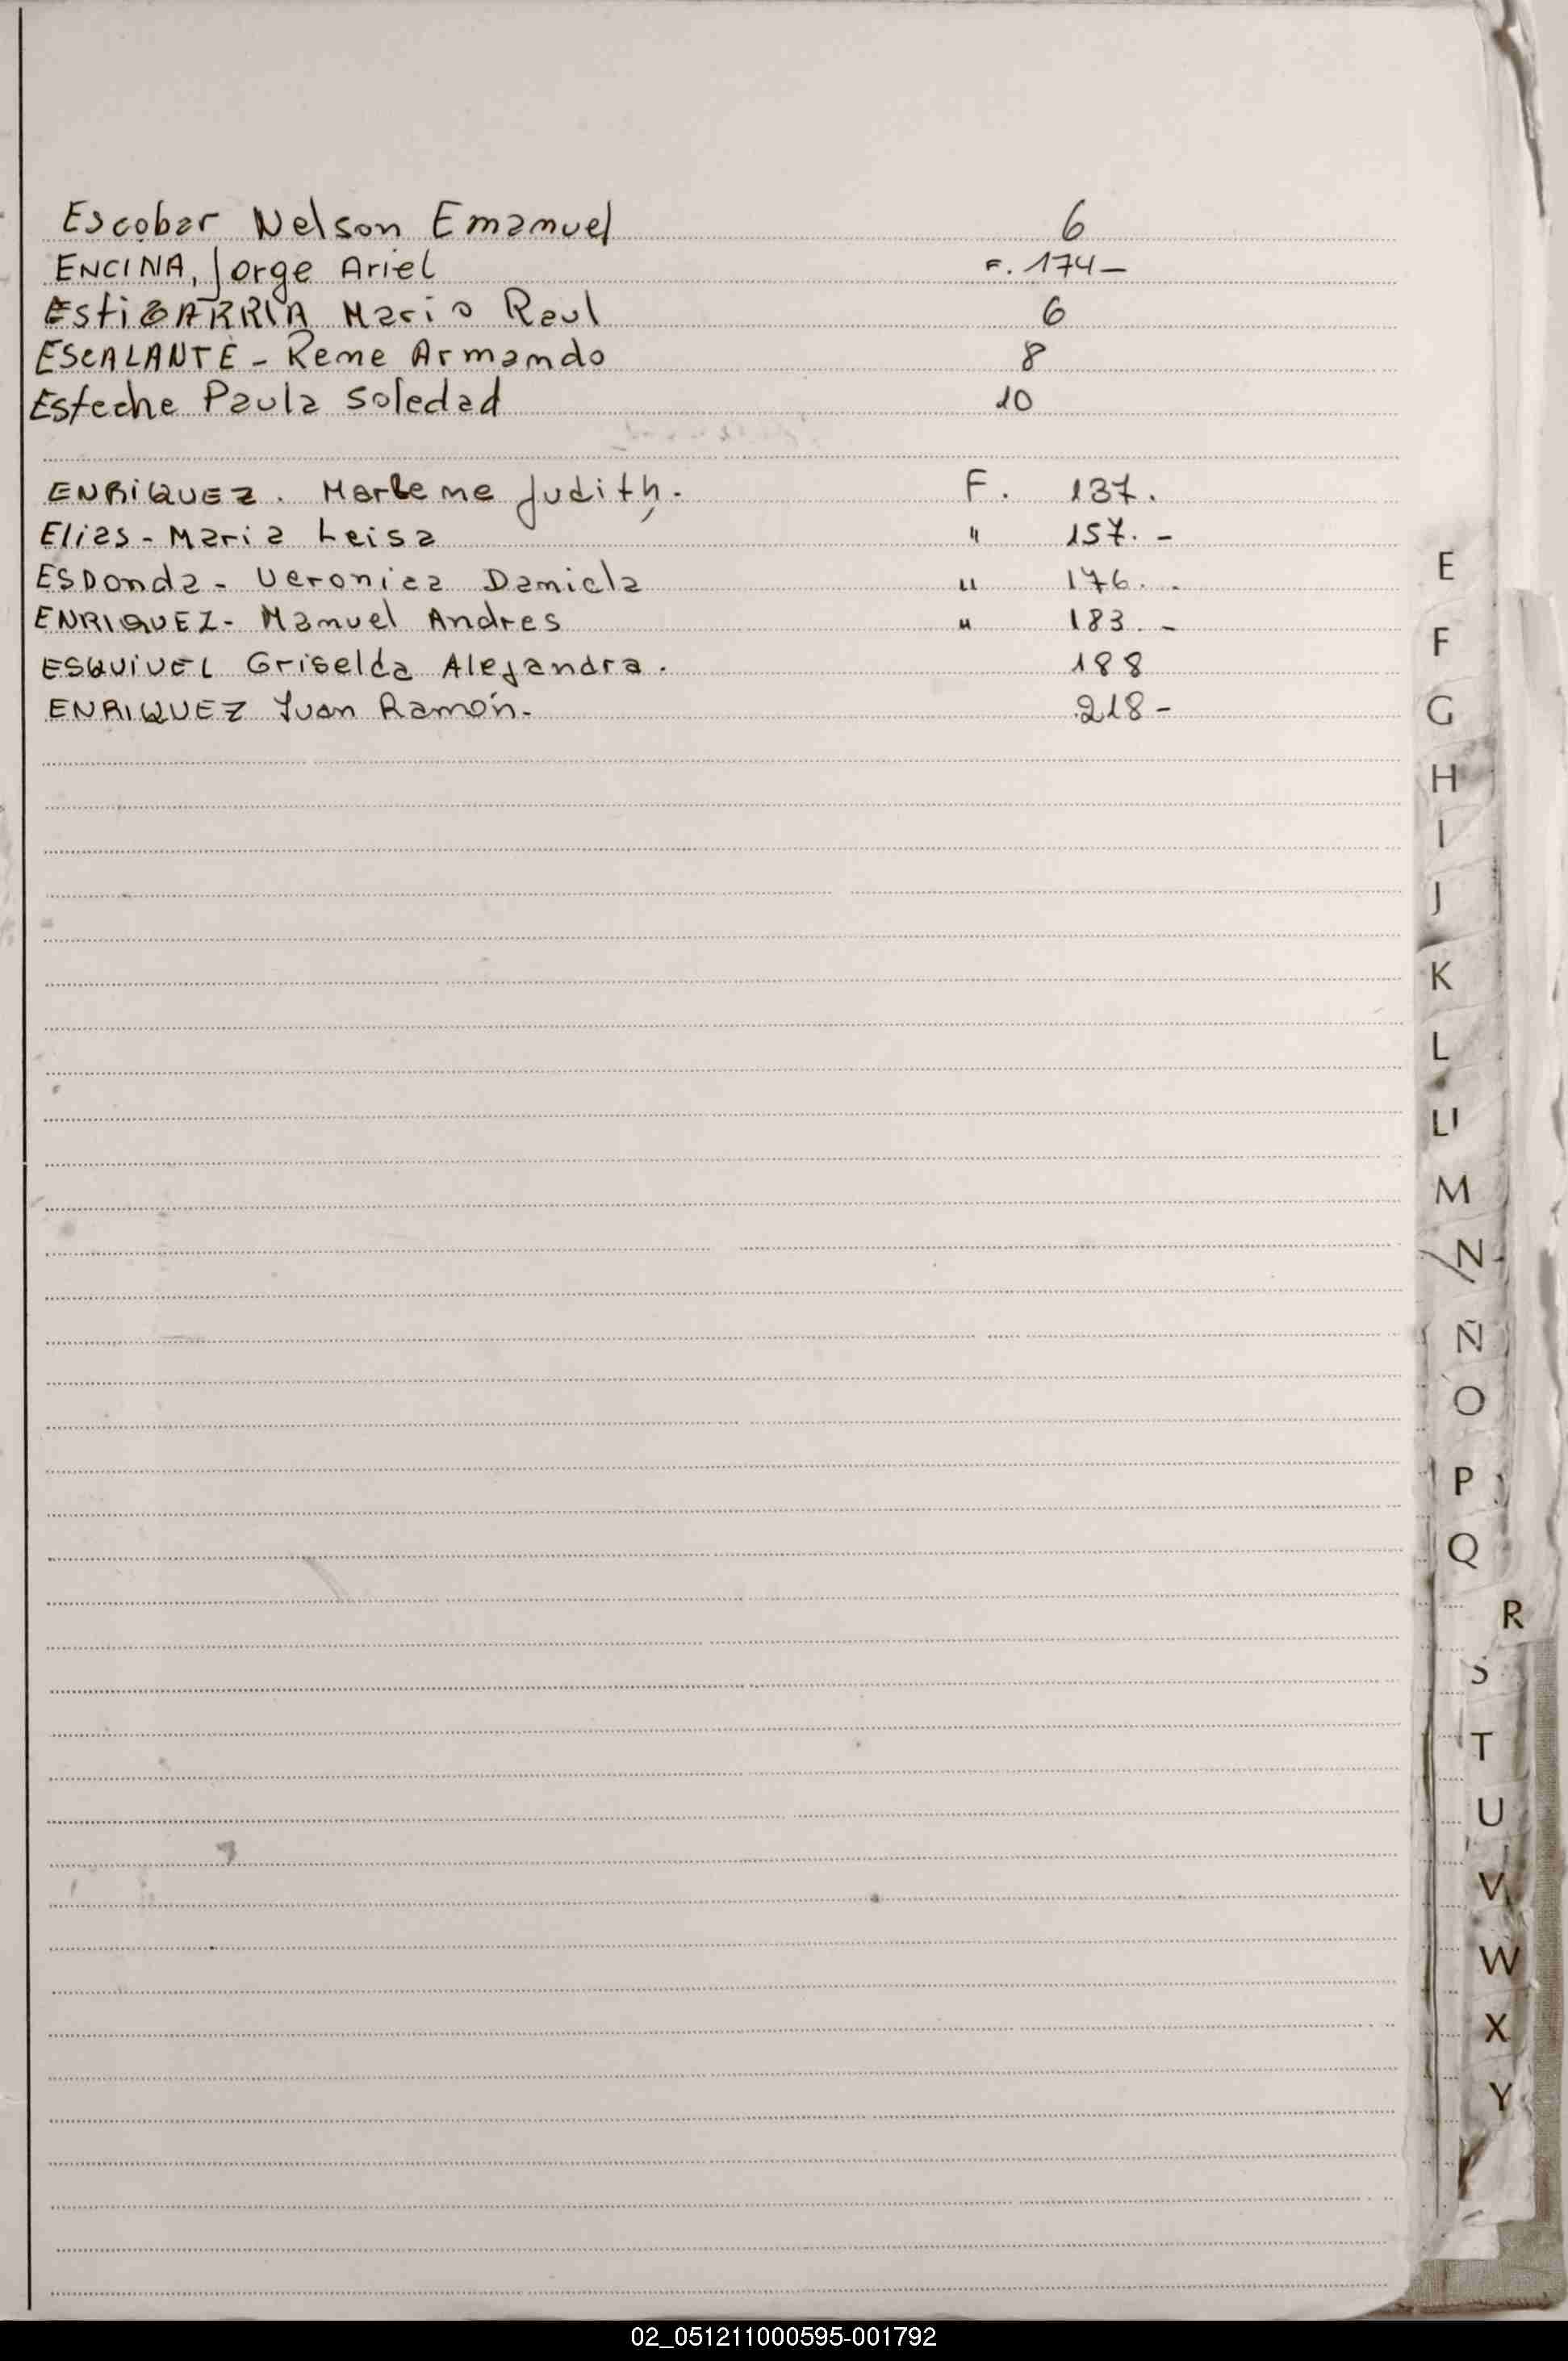 Escobar Nelson Emanuel 6
ENCINA, Jorge Ariel F. 174-
EstiGARRIA Mario Raul 6
ESCALANTE - Rene Armando 8
Esteche Paula Soledad 10
ENRIQUEZ. Marlene Judith. F. 137.
Elias - Maria Leisa " 157. -
ESDonda - Veronica Daniela " 176. -
ENRIQUEZ - Manuel Andres " 183. -
ESQUIVEL Griselda Alejandra. 188
ENRIQUEZ Juan Ramón. 218-
E
F
G
H
I
J
K
L
Ll
M
N
Ñ
O
P
Q
R
S
T
U
V
W
X
Y
02_051211000595-001792